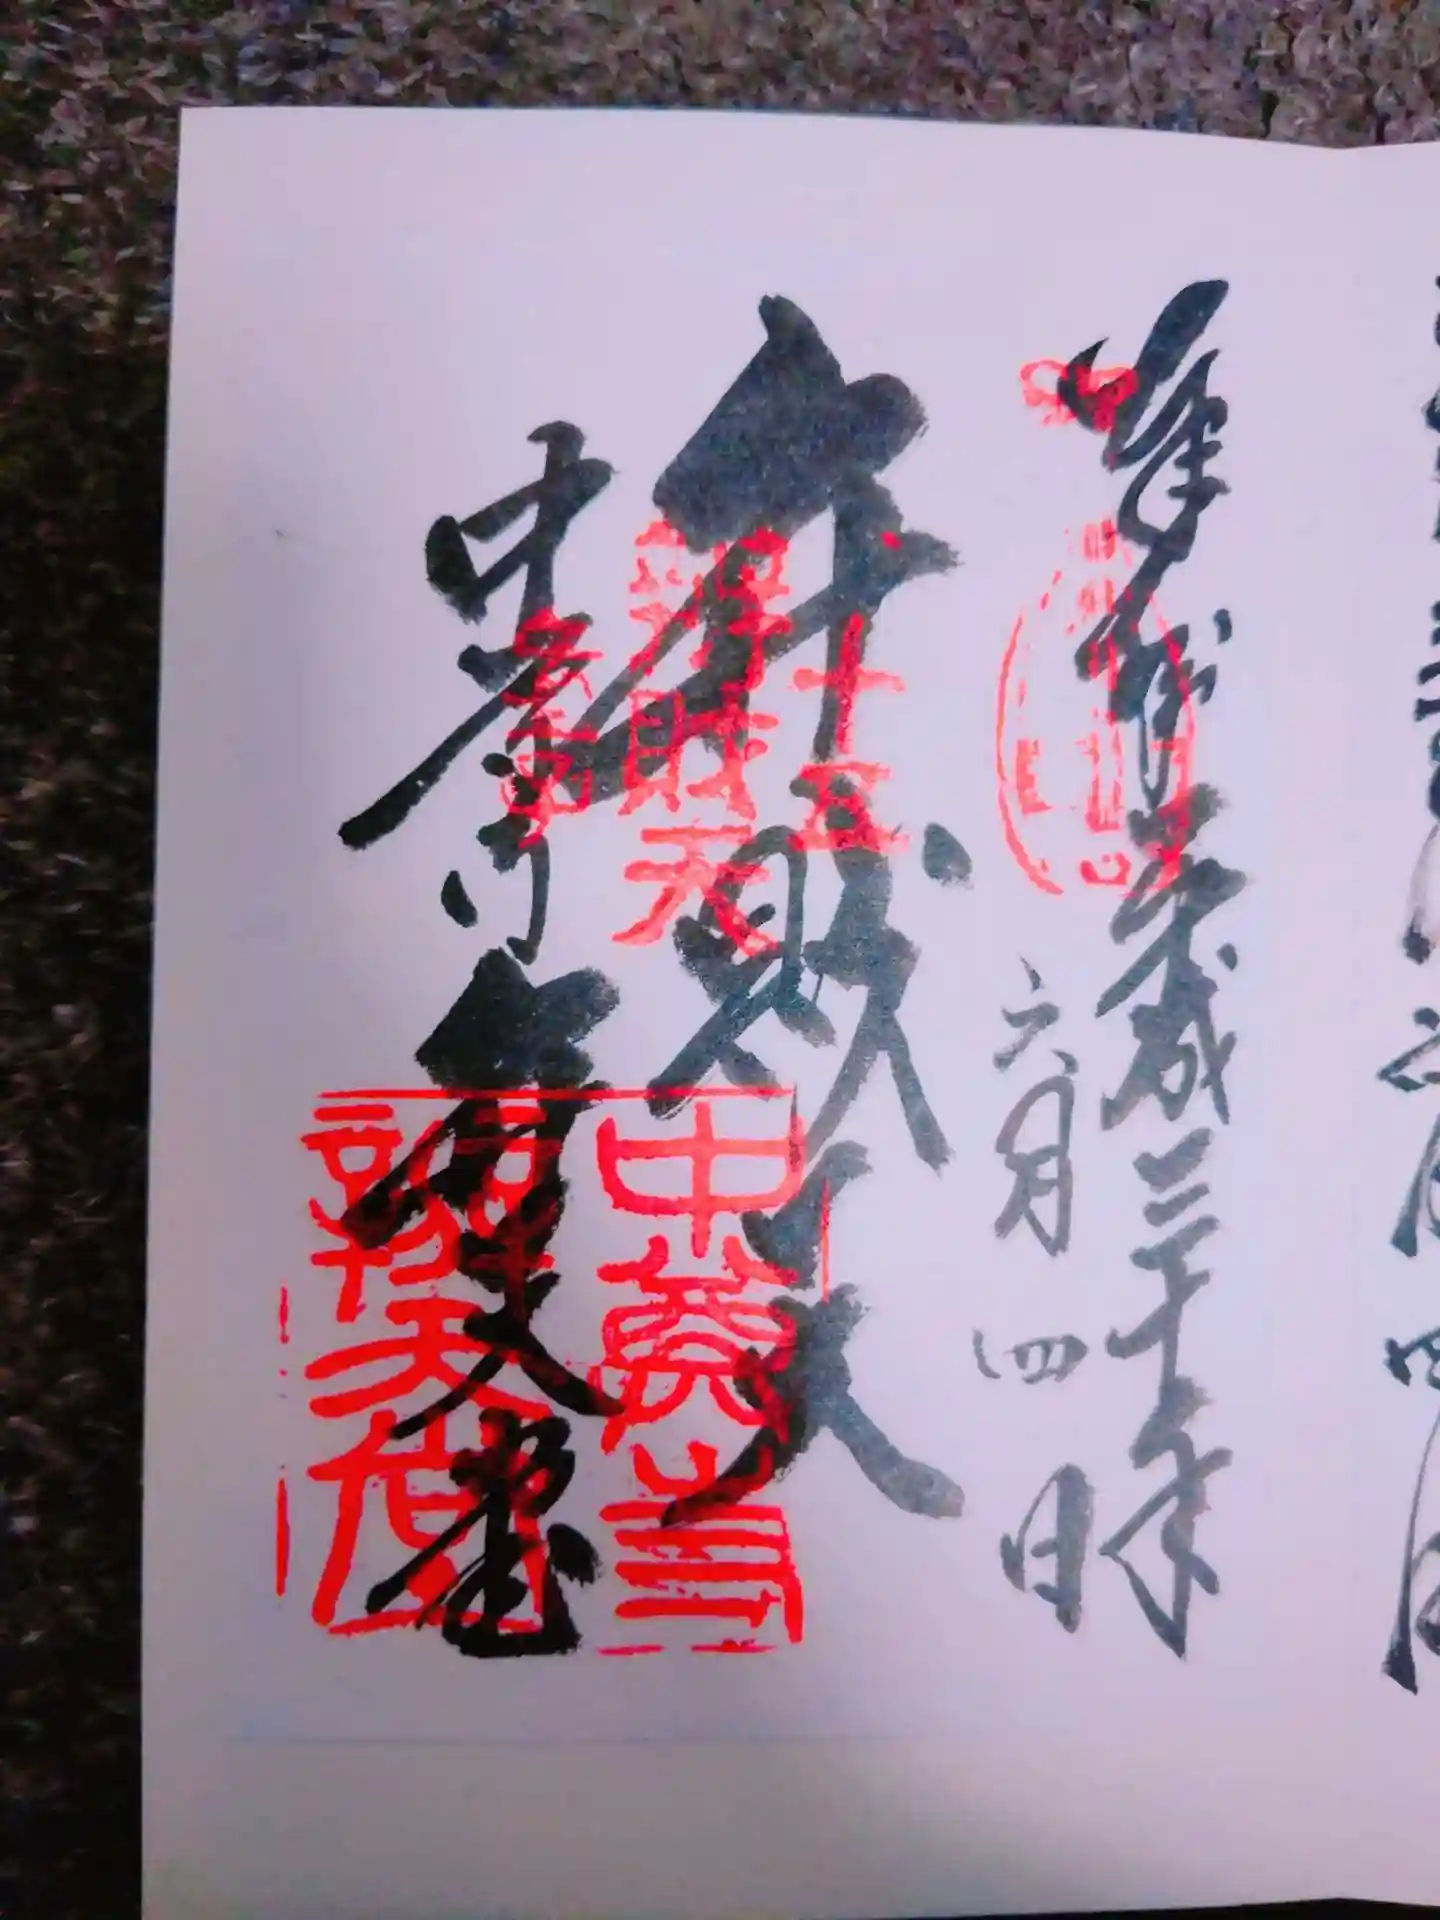 奉拝
平成三十年
六月四日
弁財天
中尊寺
弁天堂
十五
辯財天
中尊寺
辯天堂